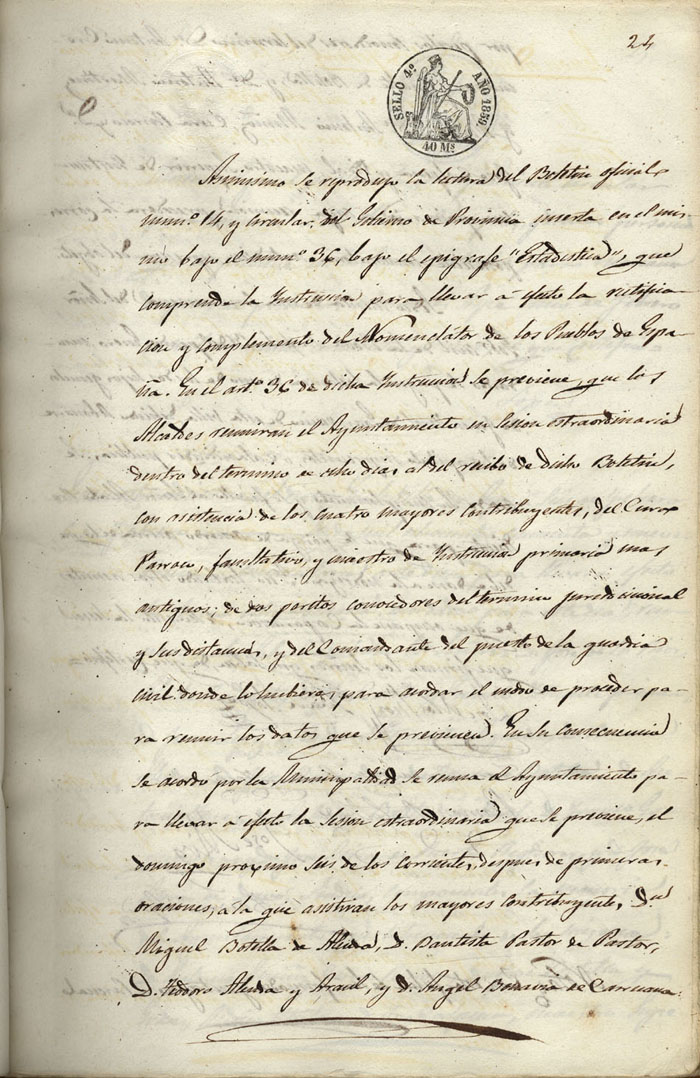 24
SELLO 4º AÑO 1859.
40 Ms
Asimismo se reprodujo la lectura del Boletin oficial
num.º 14, y circular del Gobierno de Provincia inserta en el mis-
mo bajo el num.º 36, bajo el epigrafe "Estadistica", que
comprende la Instrucion para llevar á efecto la rectifica-
cion y complemento del Nomenclátor de los Pueblos de Espa-
ña. En el art.º 36 de dicha Instrucion se previene, que los
Alcaldes reuniran el Ayuntamiento en sesion estraordinaria
dentro del termino de ocho dias al del recibo de dicho Boletin,
con asistencia de los cuatro mayores contribuyentes, del Cura
Parroco, facultativo, y maestro de Instrucion primaria mas
antiguos; de dos peritos conocedores del termino juridicional
y sus distancias, y del Comandante del puesto de la guardia
civil donde lo hubiera, para acordar el modo de proceder pa-
ra reunir los datos que se previenen. En su consecuencia
se acordo por la Municipalidad se reuna el Ayuntamiento pa-
ra llevar á efecto la sesion estraordinaria que se previene, el
domingo proximo seis de los corrientes, despues de primeras
oraciones, a la que asistiran los mayores contribuyentes, Dn
Miguel Botella de, D. Bautista Pastor de Pastor,
D. Teodoro y, y D. Angel de Carruana.